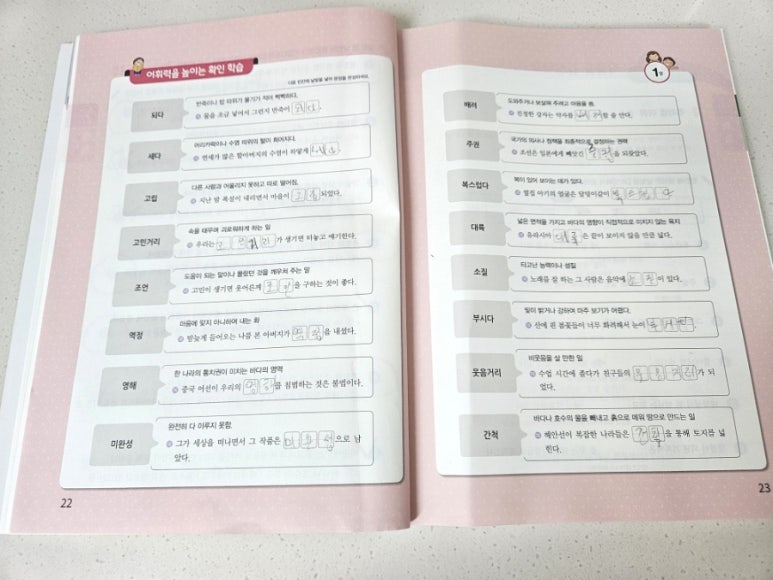 어휘력을 높이는 확인 학습
다음 빈칸에 낱말을 넣어 문장을 완성하세요.
되다
반죽이나 밥 따위가 물기가 적어 빡빡하다.
물을 조금 넣어서 그런지 반죽이 되다.
세다
머리카락이나 수염 따위의 털이 희어지다.
연세가 많은 할아버지의 수염이 하얗게
고립
다른 사람과 어울리지 못하고 따로 떨어짐.
지난 밤 폭설이 내리면서 마을이 고립되었다.
고민거리
속을 태우며 괴로워하게 하는 일
우리는 고민거리가 생기면 터놓고 얘기한다.
조언
도움이 되는 말이나 몰랐던 것을 깨우쳐 주는 말
고민이 생기면 웃어른께 조언을 구하는 것이 좋다.
역정
마음에 맞지 아니하여 내는 화
밤늦게 들어오는 나를 본 아버지가 역정을 내셨다.
영해
한 나라의 통치권이 미치는 바다의 영역
중국 어선이 우리의 영해를 침범하는 것은 불법이다.
미완성
완전히 다 이루지 못함
그가 세상을 떠나면서 그 작품은 미완성으로 남
았다.
22
1장
배려
도와주거나 보살펴 주려고 마음을 씀.
진정한 강자는 약자를 배려할 줄 안다.
주권
국가의 의사나 정책을 최종적으로 결정하는 권력
조선은 일본에게 빼앗긴 주권을 되찾았다.
복스럽다
복이 있어 보이는 데가 있다.
옆집 아기의 얼굴은 달덩이같이
대륙
넓은 면적을 가지고 바다의 영향이 직접적으로 미치지 않는 육지
유라시아 대륙은 끝이 보이지 않을 만큼 넓다.
소질
타고난 능력이나 성질
노래를 잘 하는 그 사람은 음악에 소질이 있다.
부시다
빛이 밝거나 강하여 마주 보기가 어렵다.
산에 핀 봄꽃들이 너무 화려해서 눈이
웃음거리
비웃음을 살 만한 일
수업 시간에 졸다가 친구들의 웃음거리가 되
었다.
간척
바다나 호수의 물을 빼내고 흙으로 메워 땅으로 만드는 일
해안선이 복잡한 나라들은 간척을 통해 토지를 넓
힌다.
23